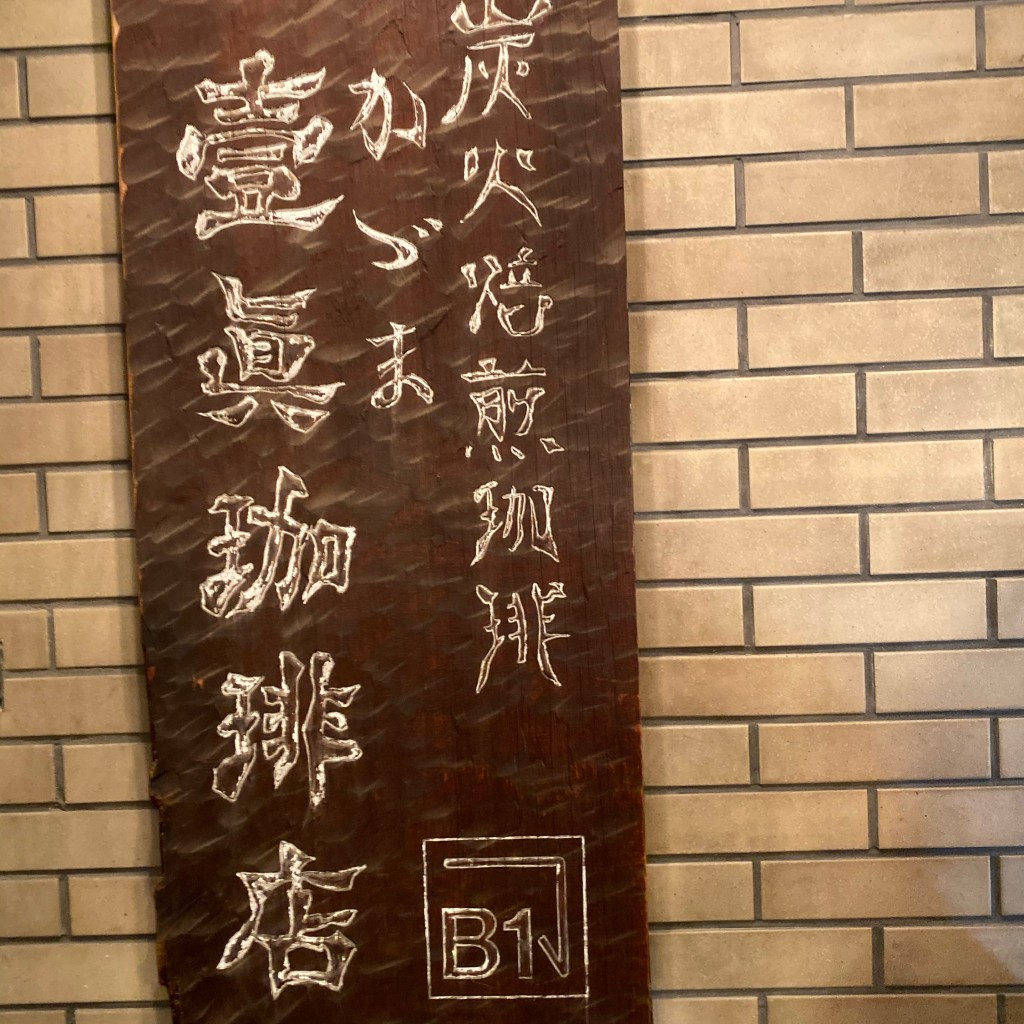 炭火焙煎珈琲
かづま
壹眞珈琲店
B1